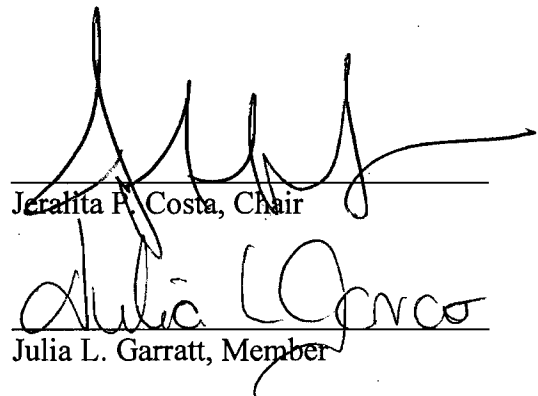 Jeralita P. Costa, Chair
Julia L.
Julia L. Garratt, Member